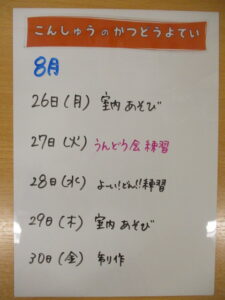 こんしゅうのかつどうよてい
8月
26日(月) 室内あそび
27日(火) うんどう会練習
28日(水) よーい!どん!!練習
29日(木) 室内あそび
30日(金) 制作